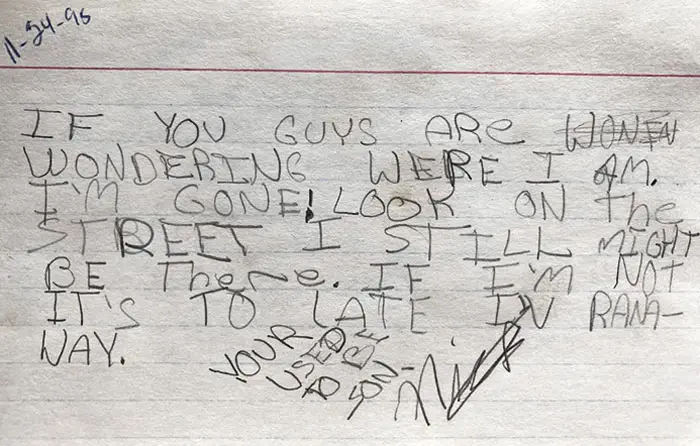 11-24-96
IF YOU GUYS ARE WONEN
WONDERING WERE I AM.
I'M GONE! LOOK ON The
STREET I STILL MIGHT
BE There. IF I'M NOT
IT'S TO LATE IV RANA-
WAY.
YOUR
USED
TO BE
SON-
Nick